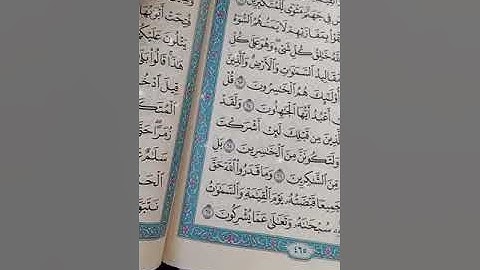 فِى جَهَنَّمَ مَثْوًى لِّلْمُتَكَبِّرِينَ
بِمَفَازَتِهِمْ لَا يَمَسُّهُمُ ٱلسُّوٓءُ
خَٰلِقُ كُلِّ شَىْءٍ وَهُوَ عَلَىٰ كُلِّ
مَقَالِيدُ ٱلسَّمَٰوَٰتِ وَٱلْأَرْضِ وَٱلَّذِينَ
أُو۟لَٰٓئِكَ هُمُ ٱلْخَٰسِرُونَ ٦٣ قُلْ
أَعْبُدُ أَيُّهَا ٱلْجَٰهِلُونَ ٦٤ وَلَقَدْ
ٱلَّذِينَ مِن قَبْلِكَ لَئِنْ أَشْرَكْتَ
وَلَتَكُونَنَّ مِنَ ٱلْخَٰسِرِينَ ٦٥ بَلِ
مِّنَ ٱلشَّٰكِرِينَ ٦٦ وَمَا قَدَرُوا۟ ٱللَّهَ حَقَّ
جَمِيعًا قَبْضَتُهُۥ يَوْمَ ٱلْقِيَٰمَةِ وَٱلسَّمَٰوَٰتُ
سُبْحَٰنَهُۥ وَتَعَٰلَىٰ عَمَّا يُشْرِكُونَ ٦٧
٤٦٥
فُتِحَتْ أَبْوَٰبُهَا
يَتْلُونَ عَلَيْكُمْ
هَٰذَا قَالُوا۟ بَلَىٰ
قِيلَ
زُمَرًا
سَلَٰمٌ